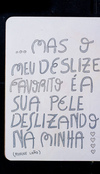 ... MAS O
MEU DESLIZE
FAVORITO É A
SUA PELE
DESLIZANDO
NA MINHA